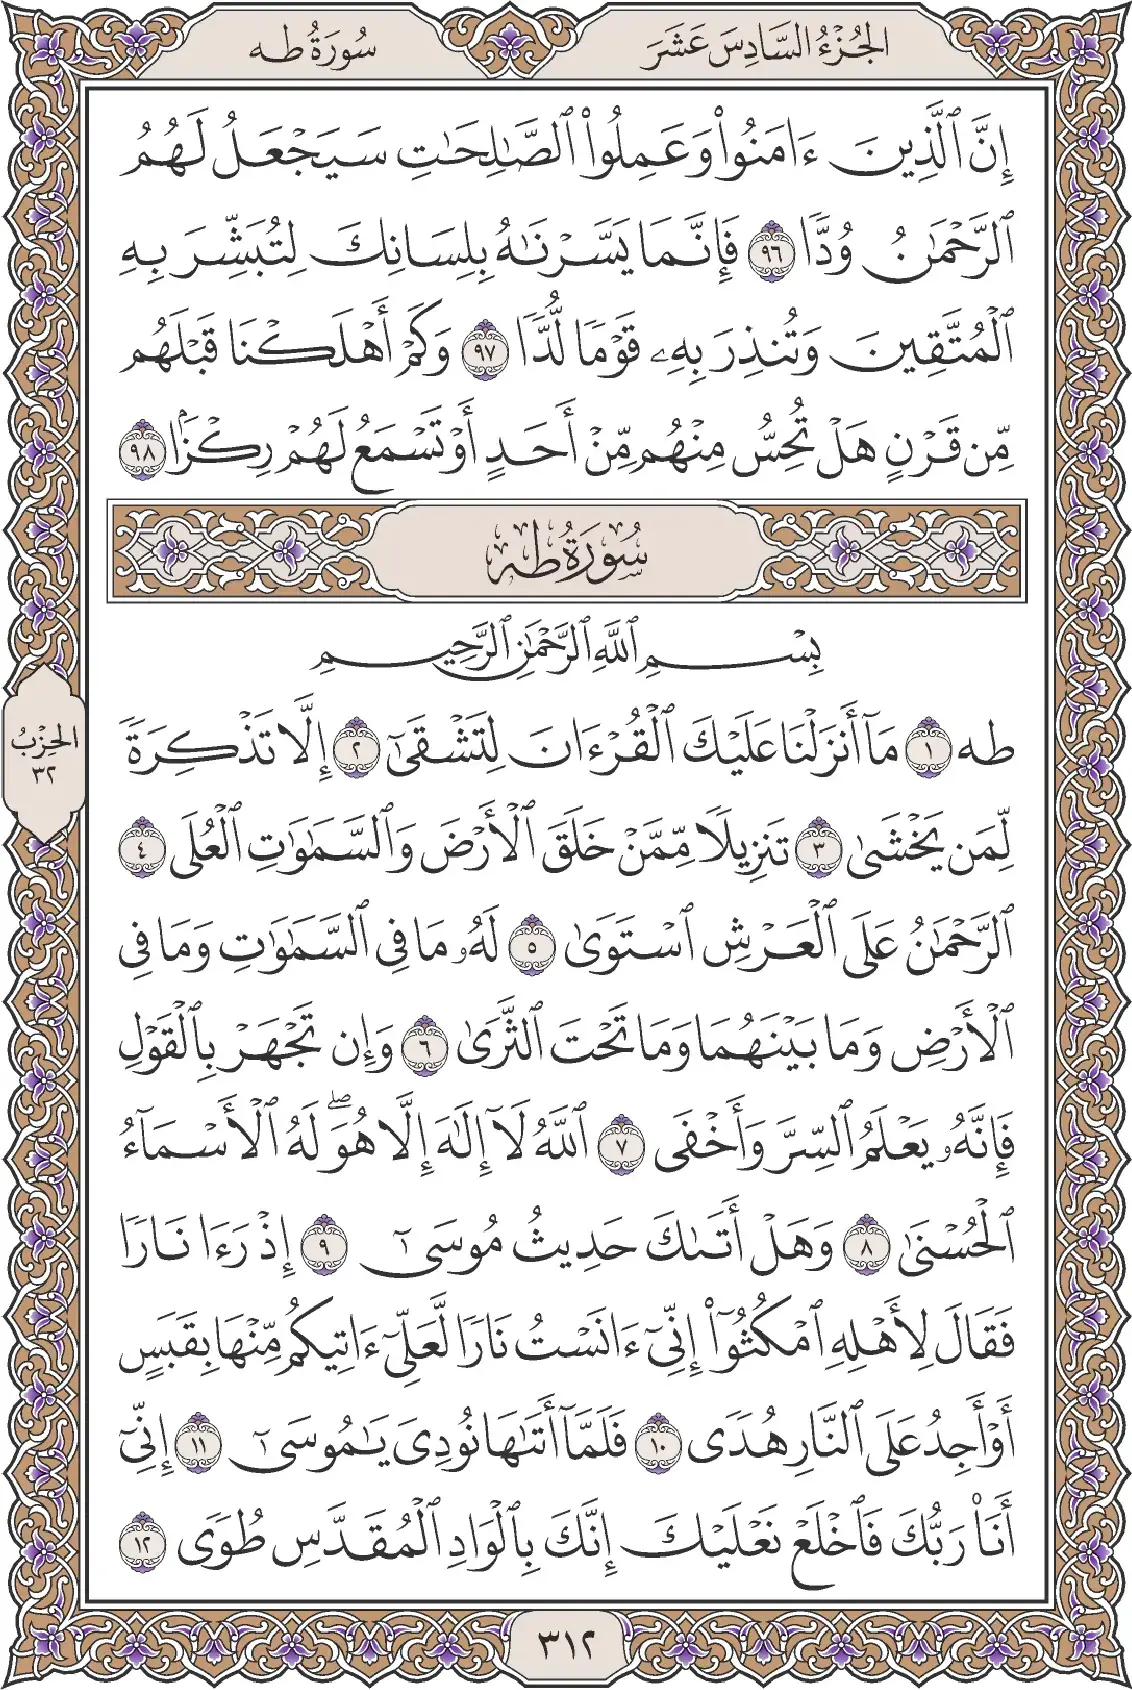 الجُزْءُ السَّادِسَ عَشَرَ
سُورَةُ طه
إِنَّ ٱلَّذِينَ ءَامَنُواْ وَعَمِلُواْ ٱلصَّٰلِحَٰتِ سَيَجۡعَلُ لَهُمُ
ٱلرَّحۡمَٰنُ وُدّٗا ٩٦ فَإِنَّمَا يَسَّرۡنَٰهُ بِلِسَانِكَ لِتُبَشِّرَ بِهِ
ٱلۡمُتَّقِينَ وَتُنذِرَ بِهِۦ قَوۡمٗا لُّدّٗا ٩٧ وَكَمۡ أَهۡلَكۡنَا قَبۡلَهُم
مِّن قَرۡنٍ هَلۡ تُحِسُّ مِنۡهُم مِّنۡ أَحَدٍ أَوۡ تَسۡمَعُ لَهُمۡ رِكۡزَۢا ٩٨
سُورَةُ طه
بِسۡمِ ٱللَّهِ ٱلرَّحۡمَٰنِ ٱلرَّحِيمِ
طه ١ مَآ أَنزَلۡنَا عَلَيۡكَ ٱلۡقُرۡءَانَ لِتَشۡقَىٰٓ ٢ إِلَّا تَذۡكِرَةٗ
لِّمَن يَخۡشَىٰ ٣ تَنزِيلٗا مِّمَّنۡ خَلَقَ ٱلۡأَرۡضَ وَٱلسَّمَٰوَٰتِ ٱلۡعُلَى ٤
ٱلرَّحۡمَٰنُ عَلَى ٱلۡعَرۡشِ ٱسۡتَوَىٰ ٥ لَهُۥ مَا فِي ٱلسَّمَٰوَٰتِ وَمَا فِي
ٱلۡأَرۡضِ وَمَا بَيۡنَهُمَا وَمَا تَحۡتَ ٱلثَّرَىٰ ٦ وَإِن تَجۡهَرۡ بِٱلۡقَوۡلِ
فَإِنَّهُۥ يَعۡلَمُ ٱلسِّرَّ وَأَخۡفَى ٧ ٱللَّهُ لَآ إِلَٰهَ إِلَّا هُوَۖ لَهُ ٱلۡأَسۡمَآءُ
ٱلۡحُسۡنَىٰ ٨ وَهَلۡ أَتَىٰكَ حَدِيثُ مُوسَىٰٓ ٩ إِذۡ رَءَا نَارٗا
فَقَالَ لِأَهۡلِهِ ٱمۡكُثُوٓاْ إِنِّيٓ ءَانَسۡتُ نَارٗا لَّعَلِّيٓ ءَاتِيكُم مِّنۡهَا بِقَبَسٍ
أَوۡ أَجِدُ عَلَى ٱلنَّارِ هُدٗى ١٠ فَلَمَّآ أَتَىٰهَا نُودِيَ يَٰمُوسَىٰٓ ١١ إِنِّيٓ
أَنَا۠ رَبُّكَ فَٱخۡلَعۡ نَعۡلَيۡكَ إِنَّكَ بِٱلۡوَادِ ٱلۡمُقَدَّسِ طُوٗى ١٢
الحِزْبُ
٣٢
٣١٢